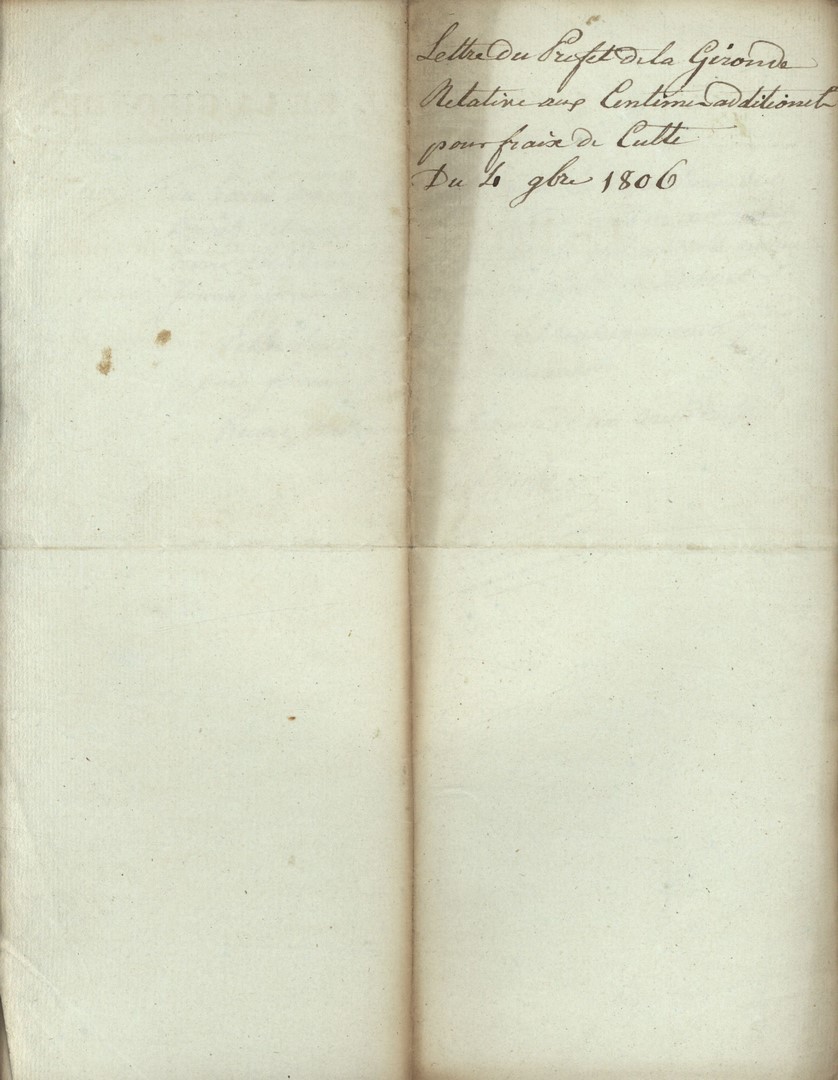 Lettre du Prefet de la Gironde
Relative aux Centimes additionels
pour fraix de Culte
Du 4 9bre 1806